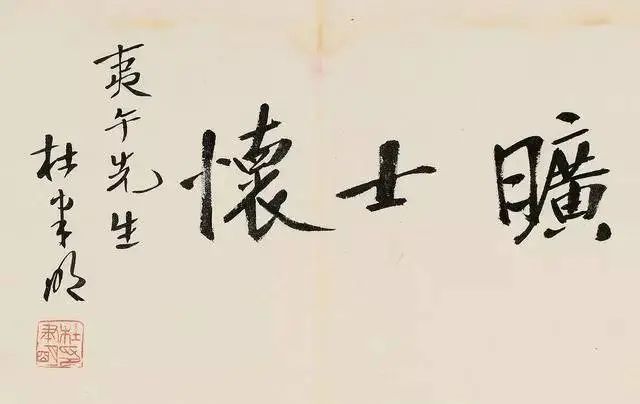 曠士懷
夷午先生
杜聿明
杜聿明印